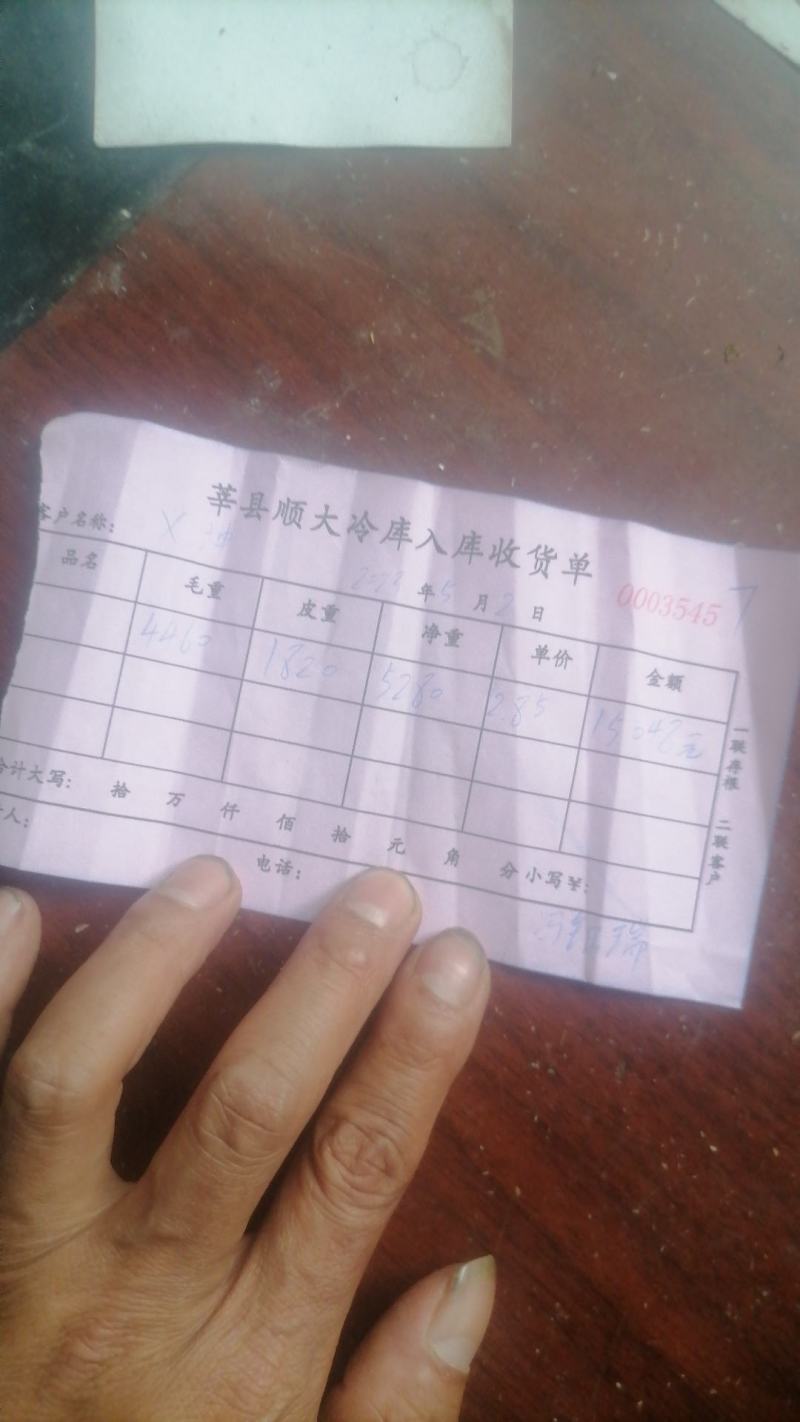 莘县顺大冷库入库收货单
客户名称:
年 5 月 2 日 0003545 7
品名 毛重 皮重 净重 单价 金额
4460 1820 5280 2.85 15048元
合计大写: 拾 万 仟 佰 拾 元 角 分 小写¥:
人: 电话:
一联存根 二联客户